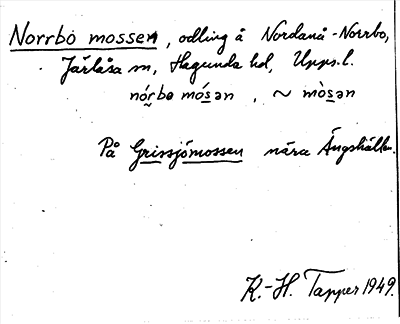 Norrbo mossen, odling å Nordanå-Norrbo,
Järlåsa sn, Hagunda hd, Upps.l.
nórbo mósən , ~ mòsən
På Grissjömossen nära Ängshällen.
K.-H. Tapper 1949.